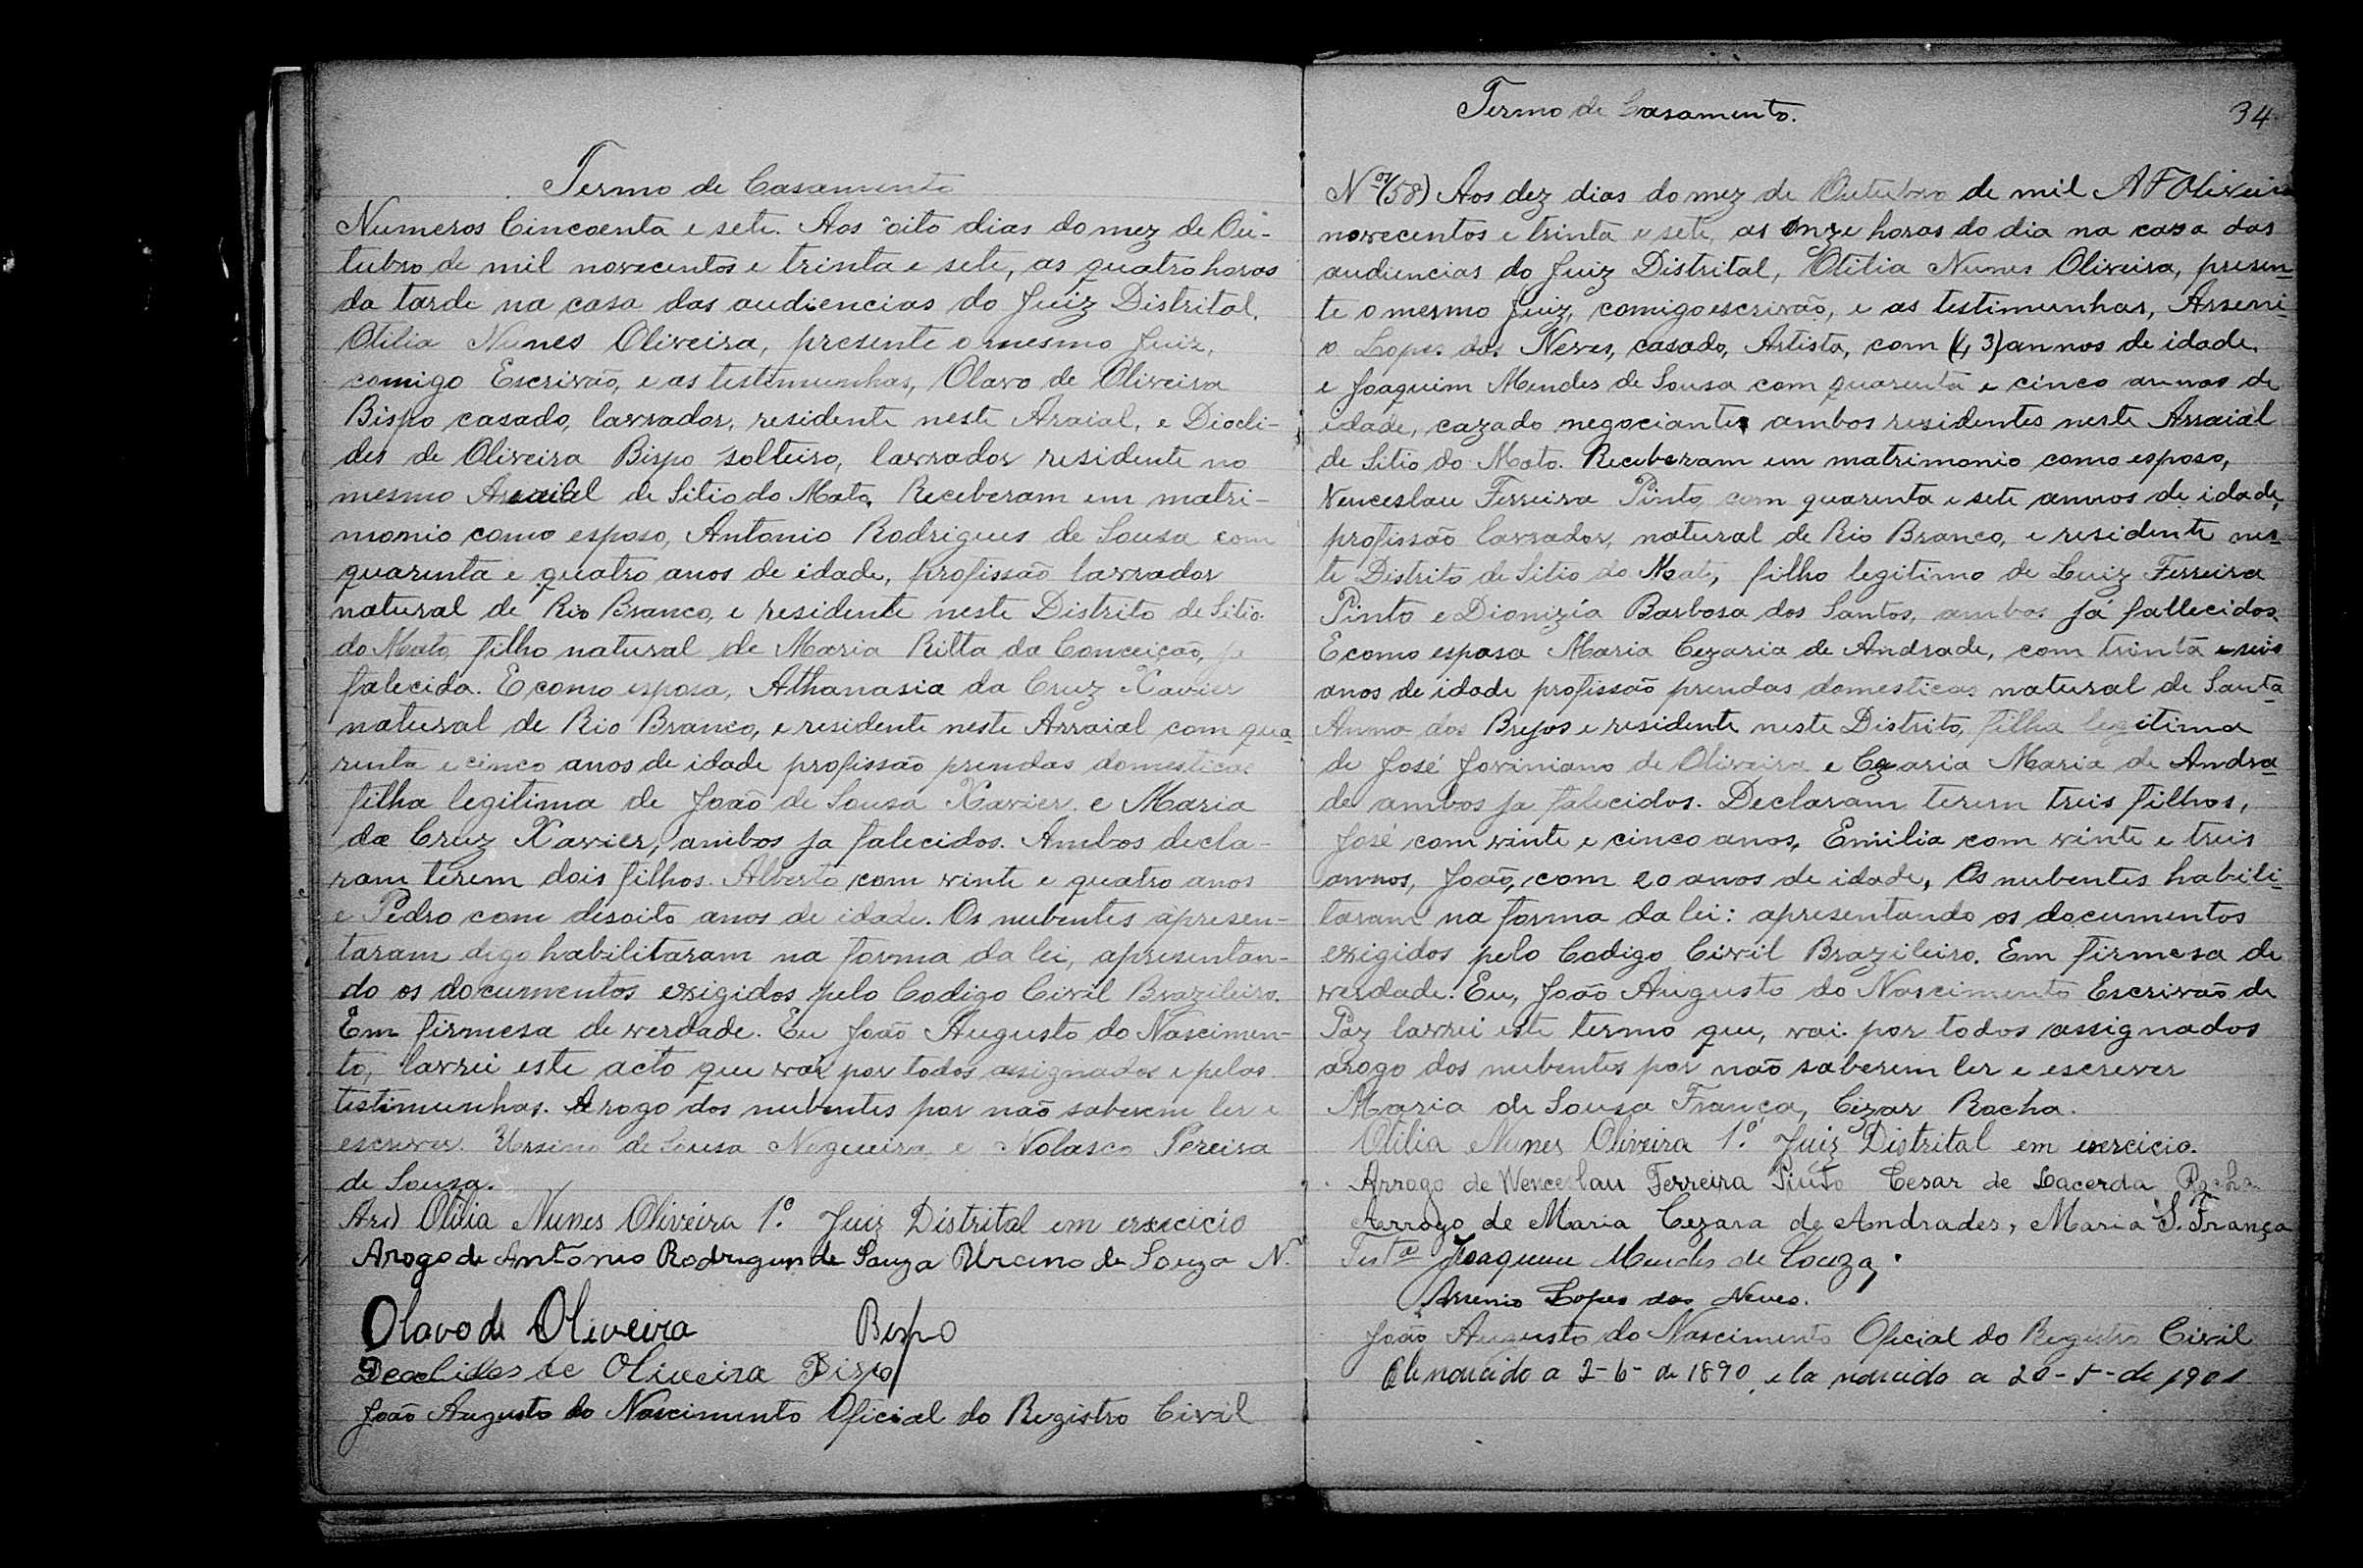 Termo de Casamento
Numeros Cincoenta e sete. Aos oito dias do mez de Ou-
tubro de mil novecentos e trinta e sete, as quatro horas
da tarde na casa das audiencias do Juiz Distrital,
Otilia Nunes Oliveira, presente o mesmo Juiz,
comigo Escrivão, e as testimunhas, Olavo de Oliveira
Bispo casado, lavrador, residente neste Araial, e Diocli-
des de Oliveira Bispo solteiro, lavrador residente no
mesmo Araial de Sitio do Mato. Receberam em matri-
monio como esposo, Antonio Rodrigues de Sousa com
quarenta e quatro anos de idade, profissão lavrador
natural de Rio Branco, e residente neste Distrito de Sitio
do Mato, filho natural de Maria Ritta da Conceição, ja
falecida. E como esposa, Athanasia da Cruz Xavier
natural de Rio Branco, e residente neste Arraial com qua-
renta e cinco anos de idade profissão prendas domesticas
filha legitima de João de Sousa Xavier, e Maria
da Cruz Xavier, ambos ja falecidos. Ambos decla-
ram terem dois filhos. Alberto com vinte e quatro anos
e Pedro com desoito anos de idade. Os nubentes apresen-
taram digo habilitaram na forma da lei, apresentan-
do os documentos exigidos pelo Codigo Civil Brazileiro.
Em firmesa de verdade. Eu João Augusto do Nascimen-
to, lavrei este acto que vai por todos assignados e pelas
testimunhas. A rogo dos nubentes por não saberem ler e
escrever. Ursino de Sousa Nogueira e Nolasco Pereira
de Sousa.
Otilia Nunes Oliveira 1.º Juiz Distrital em exercicio
Arogo de Antonio Rodrigues de Souza Urcino de Souza N.
Olavo de Oliveira Bispo
Deoclides de Oliveira Bispo
João Augusto do Nascimento Oficial do Registro Civil
Termo de Casamento.
34
Nº (58) Aos dez dias do mez de Outubro de mil A F Oliveira
novecentos e trinta e sete, as onze horas do dia na casa das
audiencias do Juiz Distrital, Otilia Nunes Oliveira, presen-
te o mesmo Juiz, comigo escrivão, e as testimunhas, Arseni-
o Lopes das Neves, casado, Artista, com (43) annos de idade,
e Joaquim Mendes de Sousa com quarenta e cinco annos de
idade, cazado negociante, ambos residentes neste Arraial
de Sitio do Mato. Receberam em matrimonio como esposo,
Venceslau Ferreira Pinto, com quarenta e sete annos de idade,
profissão lavrador, natural de Rio Branco, e residente nes-
te Distrito de Sitio do Mato, filho legitimo de Luiz Ferreira
Pinto e Dionizia Barbosa dos Santos, ambos já fallecidos.
E como esposa Maria Cezaria de Andrade, com trinta e seis
anos de idade profissão prendas domesticas natural de Santa
Anna dos Brejos e residente neste Distrito, filha legitima
de José Joviniano de Oliveira e Cezaria Maria de Andra-
de ambos ja falecidos. Declaram terem treis filhos,
José com vinte e cinco anos, Emilia com vinte e treis
annos, João, com 20 anos de idade, Os nubentes habili-
taram na forma da lei: apresentando os documentos
exigidos pelo Codigo Civil Brazileiro. Em firmesa de
verdade. Eu, João Augusto do Nascimento Escrivão de
Paz lavrei este termo que, vai por todos assignados
arogo dos nubentes por não saberem ler e escrever
Maria de Sousa França, Cezar Rocha.
Otilia Nunes Oliveira 1.º Juiz Distrital em exercicio.
Arrogo de Wenceslau Ferreira Pinto Cesar de Lacerda Rocha
Arrogo de Maria Cezara de Andrades, Maria S. França
Testª Joaquim Mendes de Souza,
Arsenio Lopes das Neves.
João Augusto do Nascimento Oficial do Registro Civil
Ele nascido a 2-6- de 1890 e la nascida a 20-5- de 1901